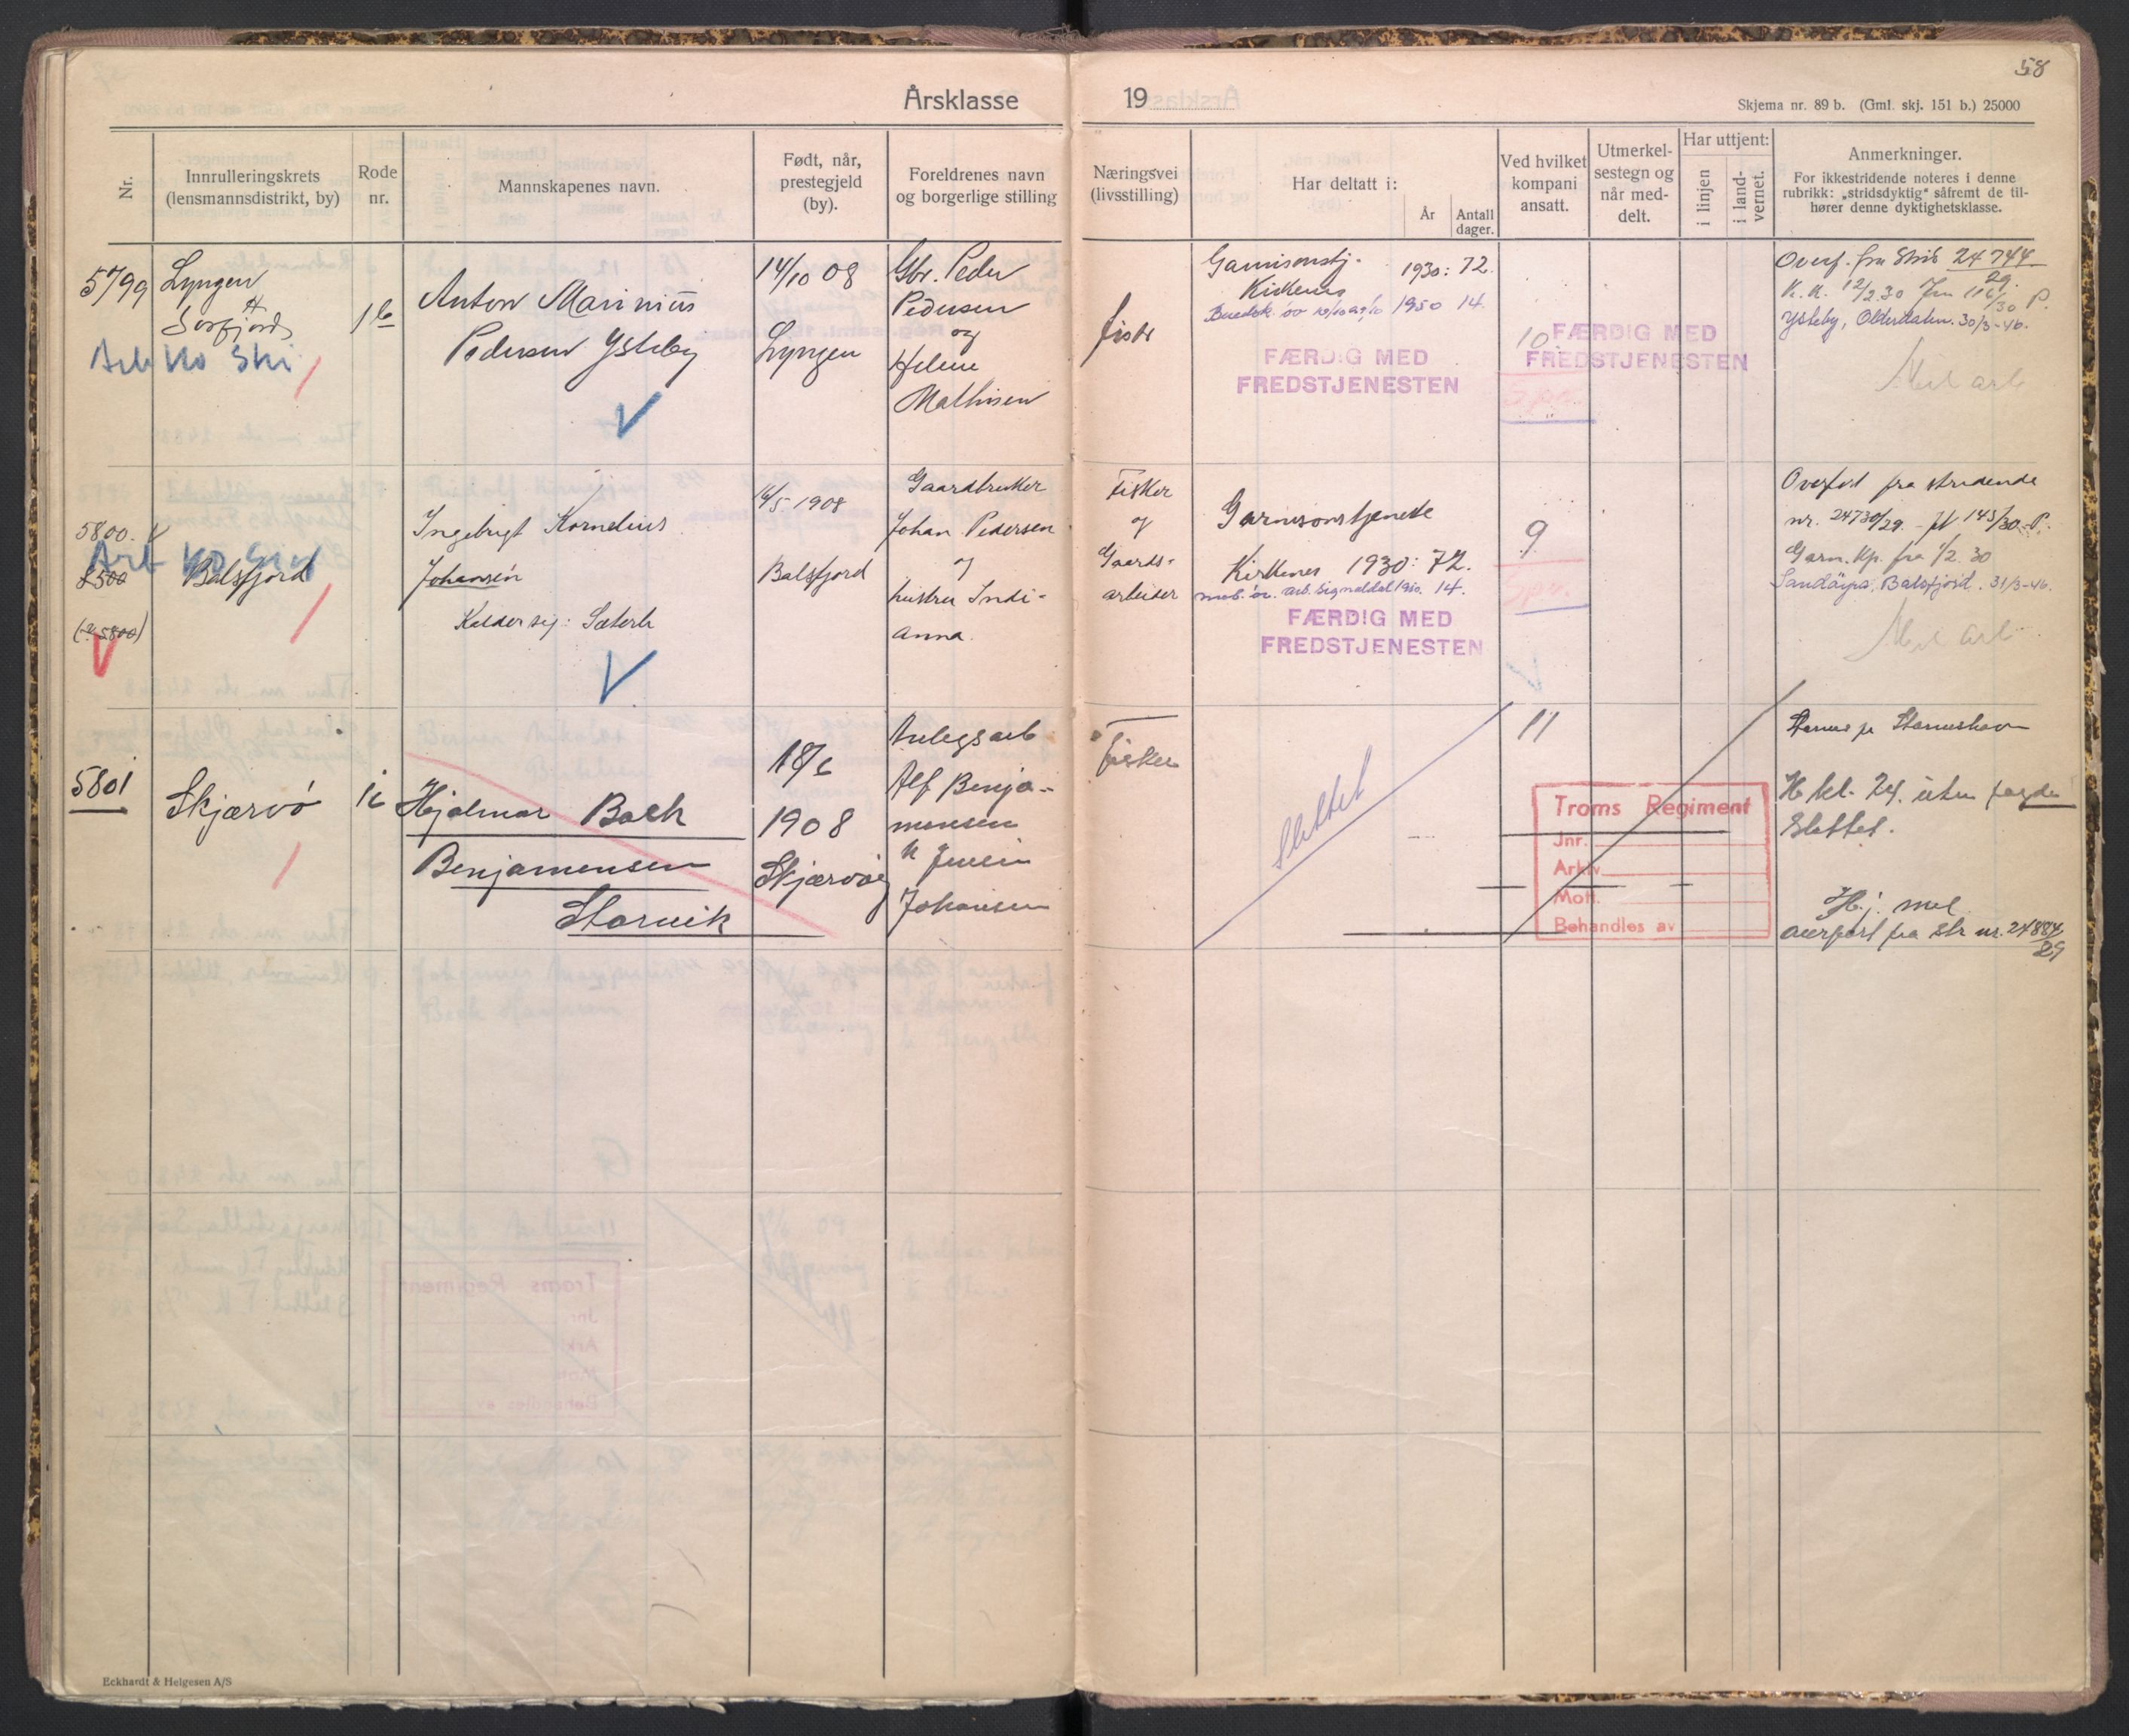 58
Årsklasse 19
Skjema nr. 89 b. (Gml. skj. 151 b.) 25000
Nr.
Innrulleringskrets
(lensmannsdistrikt, by)
Rode
nr.
Mannskapenes navn.
Født, når,
prestegjeld
(by).
Foreldrenes navn
og borgerlige stilling
Næringsvei
(livsstilling)
Har deltatt i:
År
Antall
dager.
Ved hvilket
kompani
ansatt.
Utmerkel-
sestegn og
når med-
delt.
Har uttjent:
i linjen
i land-
vernet.
Anmerkninger.
For ikkestridende noteres i denne
rubrikk: „stridsdyktig“ såfremt de til-
hører denne dyktighetsklasse.
5799
Lyngen
Sørfjord
Arb Ko Ski
Anton Marinius
Pedersen Ysteby
14/10 08
Lyngen
Gbr. Peder
Pedersen
og
Helene
Mathisen
fisker
Garnisonstj.
Kirkenes
1930: 72.
1950 14.
FÆRDIG MED
FREDSTJENESTEN
10
FÆRDIG MED
FREDSTJENESTEN
Overf. fra Strid 24744
29.
K.K. 12/2.30
Ysteby, Olderdalen. 30/3-46.
Mil arb
5800.
5500
(5800)
Balsfjord
Ingebrigt Kornelius
Johansen
Kalder sig: Sæterli
16/5 1908
Balsfjord
Gaardbruker
Johan Pedersen
og
hustru Indi-
anna.
Fisker
og
Gaards-
arbeider
Garnisonstjeneste
Kirkenes 1930: 72.
mob. øv. arb. Signaldal 1950. 14.
FÆRDIG MED
FREDSTJENESTEN
9
Overført fra stridende
nr. 24730/29. - jf 143/30-P.
Garn.kp. fra 1/2.30
Sandøyra, Balsfjord. 31/3-46.
Mil arb.
5801
Skjærvö
Hjalmar Bach
Benjamensen
Storvik
18/6
1908
Skjærvöy
Anlegsarb
Alf Benja-
mensen
Jensine
Johansen
Fisker
Slettet
11
Troms Regiment
Jnr.
Arkiv
Mott.
Behandles av
H kl. 24. uten
Slettet.
Hj. mel
overført fra str nr. 24884
29
Eckhardt & Helgesen A/S